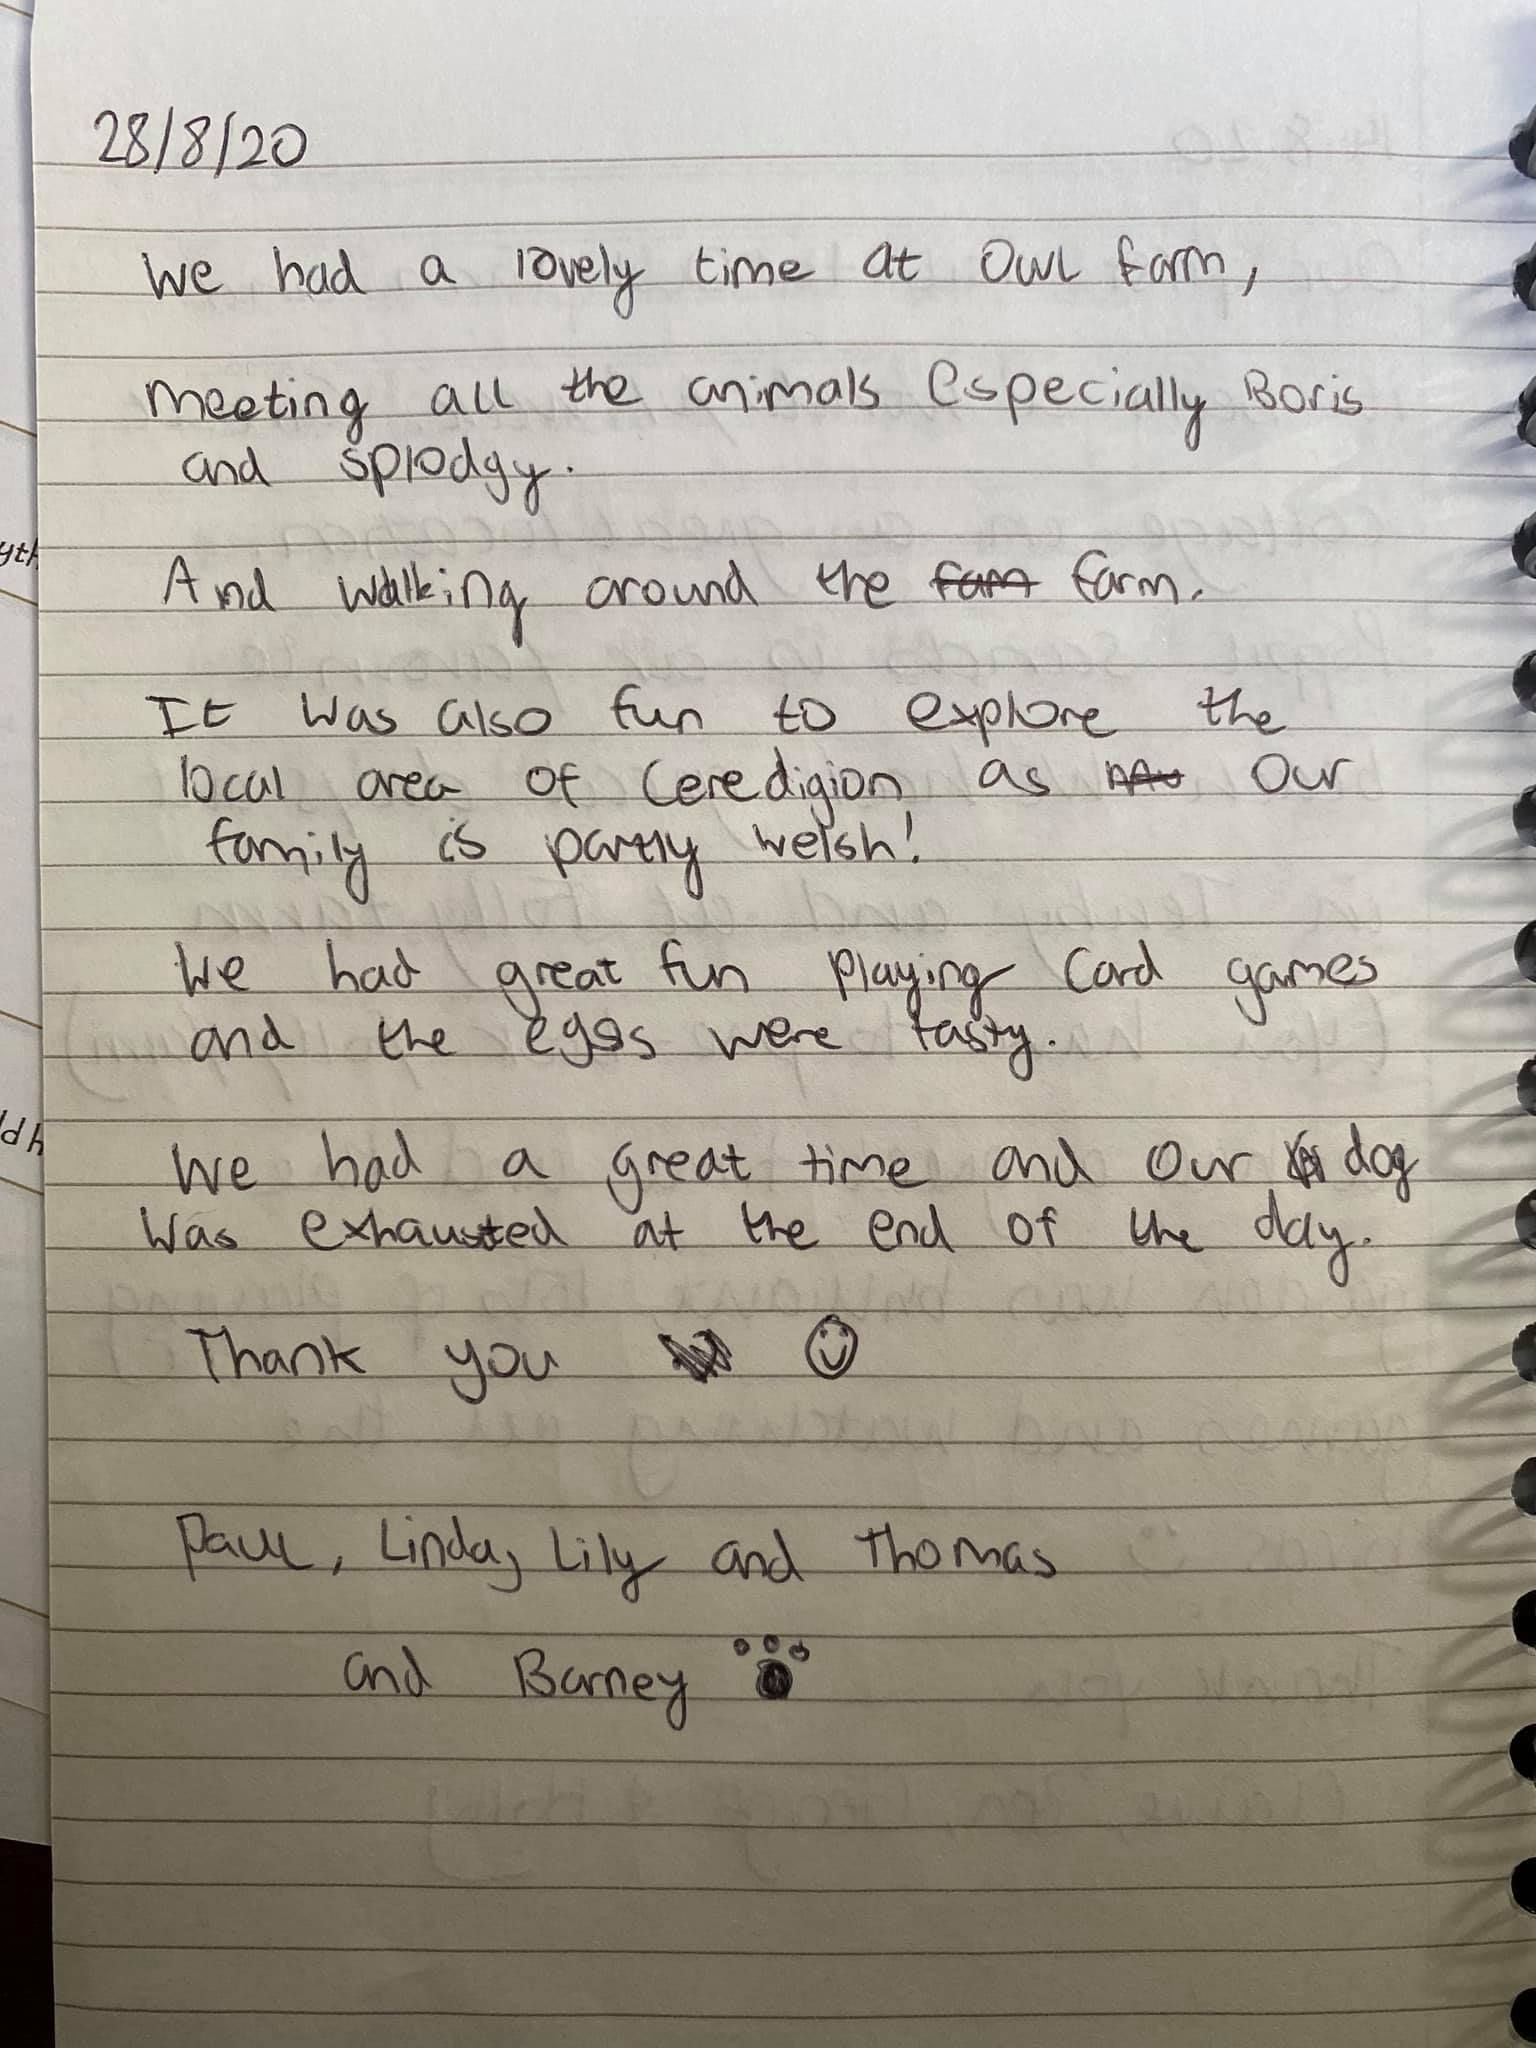 28/8/20
We had a lovely time at Owl farm,
meeting all the animals especially Boris
and splodgy.
And walking around the fam farm.
It was also fun to explore the
local area of Ceredigion as our
family is partly welsh!
We had great fun playing card games
and the eggs were tasty.
We had a great time and our dog
was exhausted at the end of the day.
Thank you
Paul, Linda, Lily and Thomas
and Barney